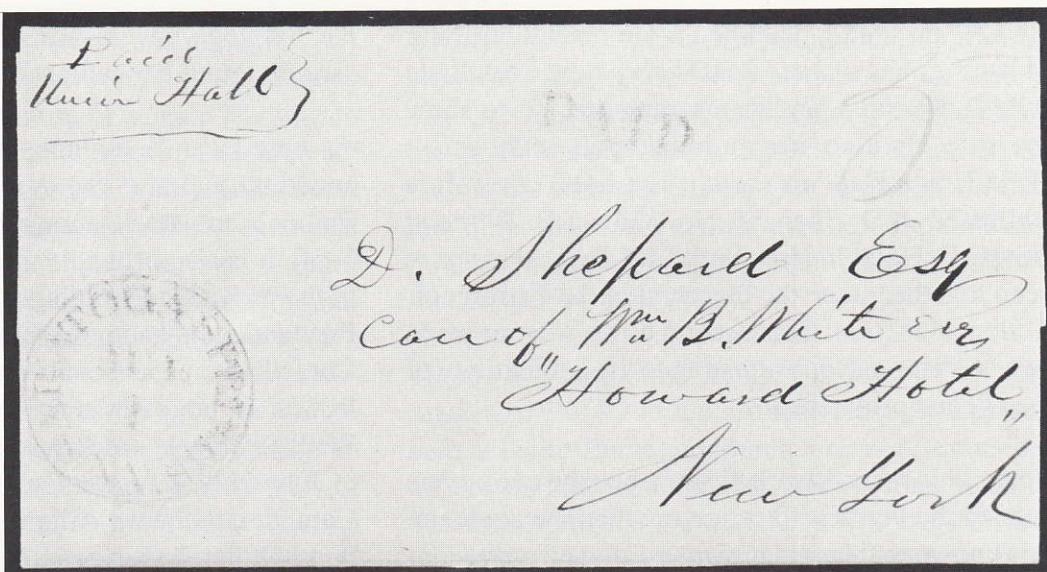 Paid
Union Hall
5
D. Shepard Esq
Care of Wm B. White Esq
"Howard Hotel"
New York